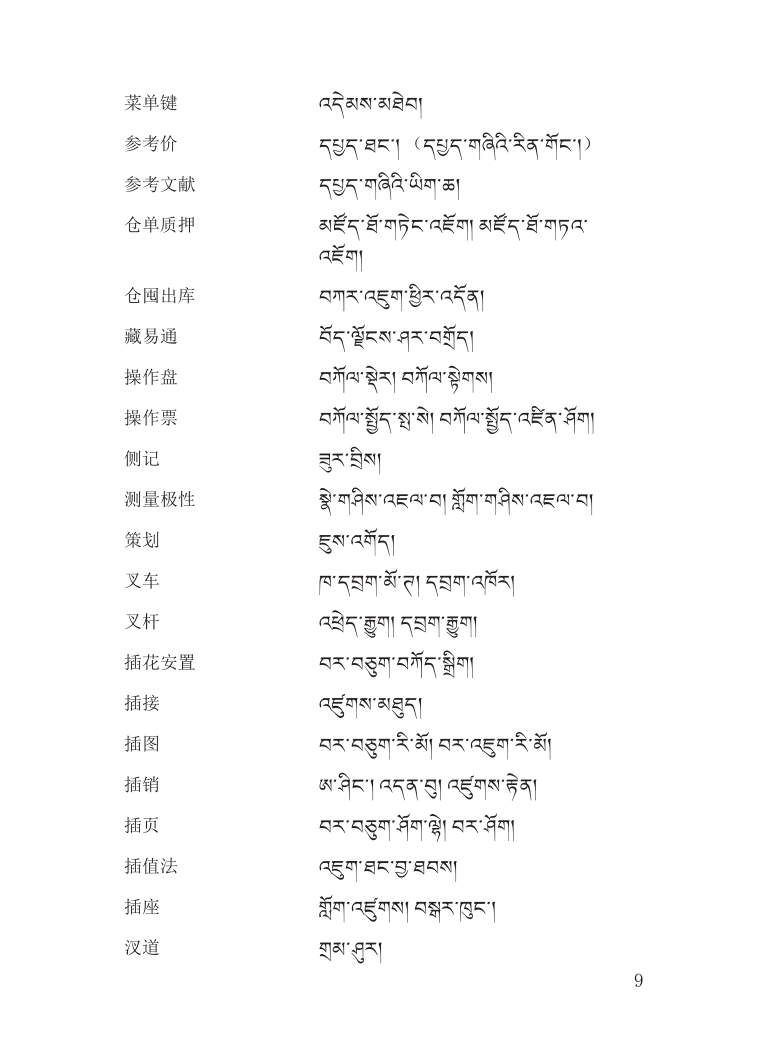 菜单键 འདེམས་མཐེབ།
参考价 དཔྱད་ཐང་། （དཔྱད་གཞིའི་རིན་གོང་།）
参考文献 དཔྱད་གཞིའི་ཡིག་ཆ།
仓单质押 མཛོད་ཐོ་གཏེང་འཇོག། མཛོད་ཐོ་གཏའ་
འཇོག།
仓囤出库 བཀར་འཇུག་ཕྱིར་འདོན།
藏易通 བོད་ལྗོངས་ཤར་བགྲོད།
操作盘 བཀོལ་སྡེར། བཀོལ་སྟེགས།
操作票 བཀོལ་སྤྱོད་སྤ་སེ། བཀོལ་སྤྱོད་འཛིན་ཤོག།
侧记 ཟུར་བྲིས།
测量极性 སྣེ་གཤིས་འཇལ་བ། གློག་གཤིས་འཇལ་བ།
策划 ཇུས་འགོད།
叉车 ཁ་དབྲག་མོ་ཊ། དབྲག་འཁོར།
叉杆 འཕྲེད་རྒྱུག། དབྲག་རྒྱུག།
插花安置 བར་བཅུག་བཀོད་སྒྲིག།
插接 འཛུགས་མཐུད།
插图 བར་བཅུག་རི་མོ། བར་འཇུག་རི་མོ།
插销 ཨ་ཤིང་། འདན་བུ། འཛུགས་རྟེན།
插页 བར་བཅུག་ཤོག་ལྷེ། བར་ཤོག།
插值法 འཇུག་ཐང་བྱ་ཐབས།
插座 གློག་འཛུགས། བསྒར་ཁུང་།
汊道 གྲམ་ཤུར།
9